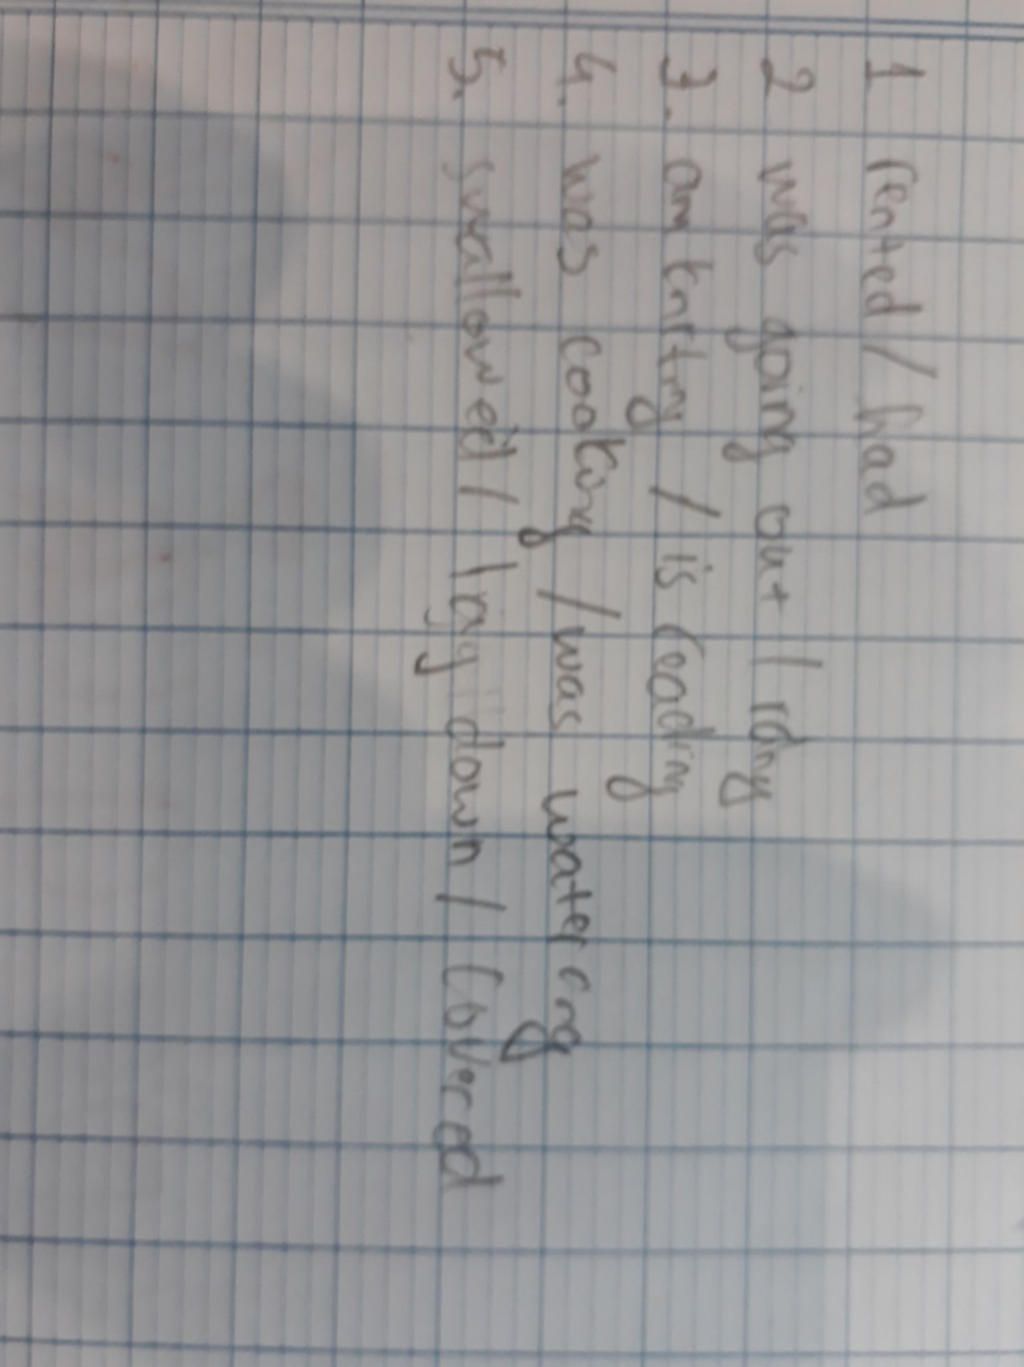 1 rented / had
2 was going out / rang
3. am kniting / is reading
4. was cooking / was watering
5. swallowed / lay down / covered